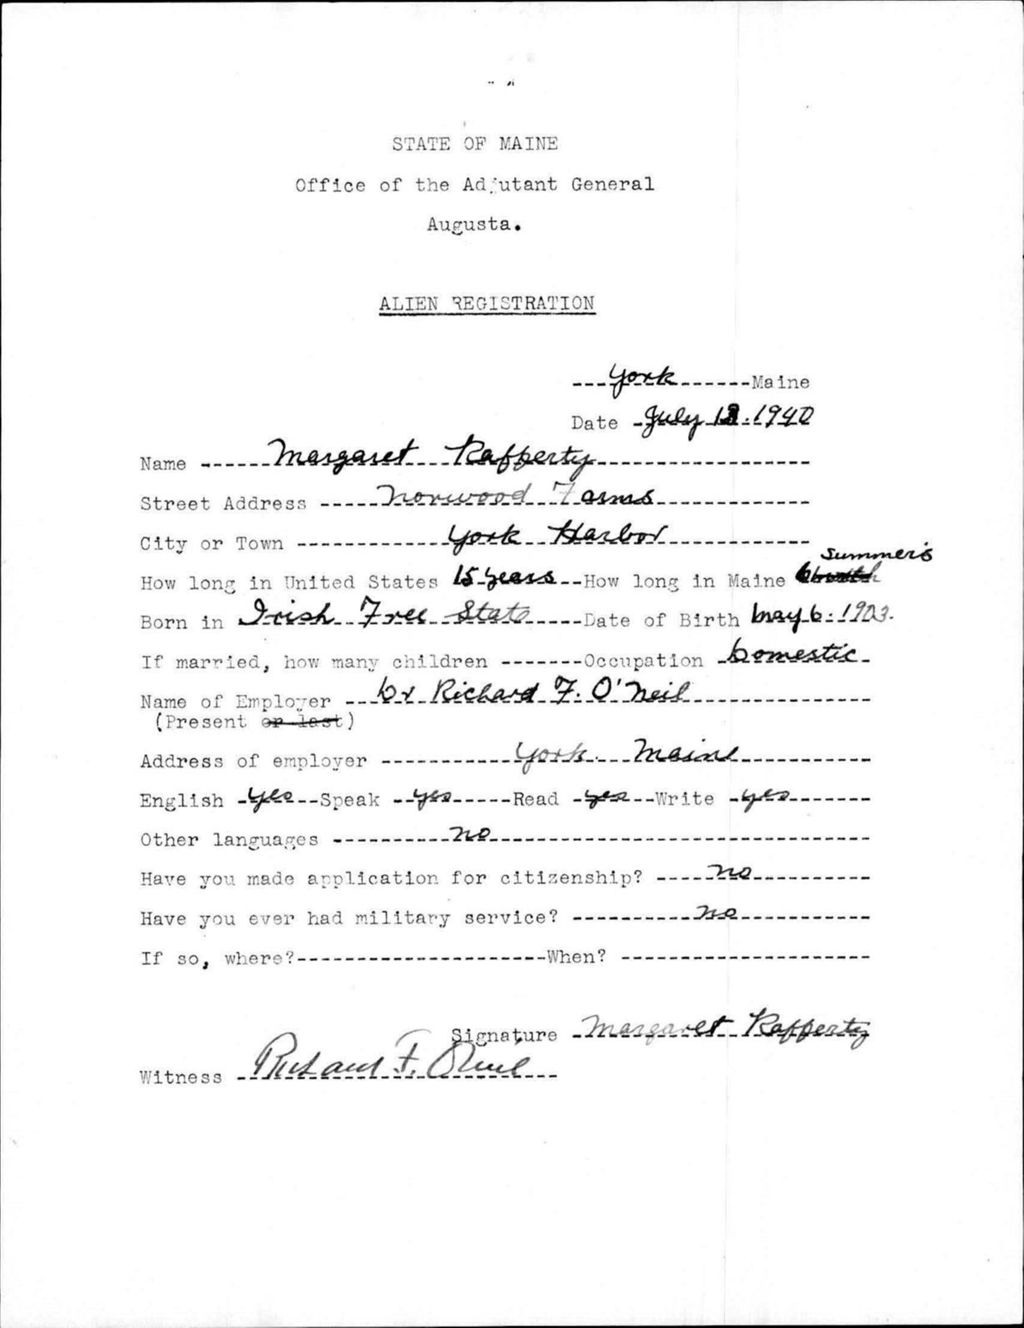 STATE OF MAINE
Office of the Adjutant General
Augusta.
ALIEN REGISTRATION
York Maine
Date July 1 . 1940
Name Margaret Rafferty
Street Address Norwood Farms
City or Town York Harbor
Summer's
How long in United States 15 years How long in Maine 6
Born in Irish Free State Date of Birth May 6. 1903.
If married, how many children Occupation Domestic
Name of Employer Dr Richard F. O'Neil
(Present or last)
Address of employer York. Maine
English yes Speak yes Read yes Write yes
Other languages no
Have you made application for citizenship? no
Have you ever had military service? no
If so, where? When?
Signature Margaret Rafferty
Witness Richard F. O'Neil